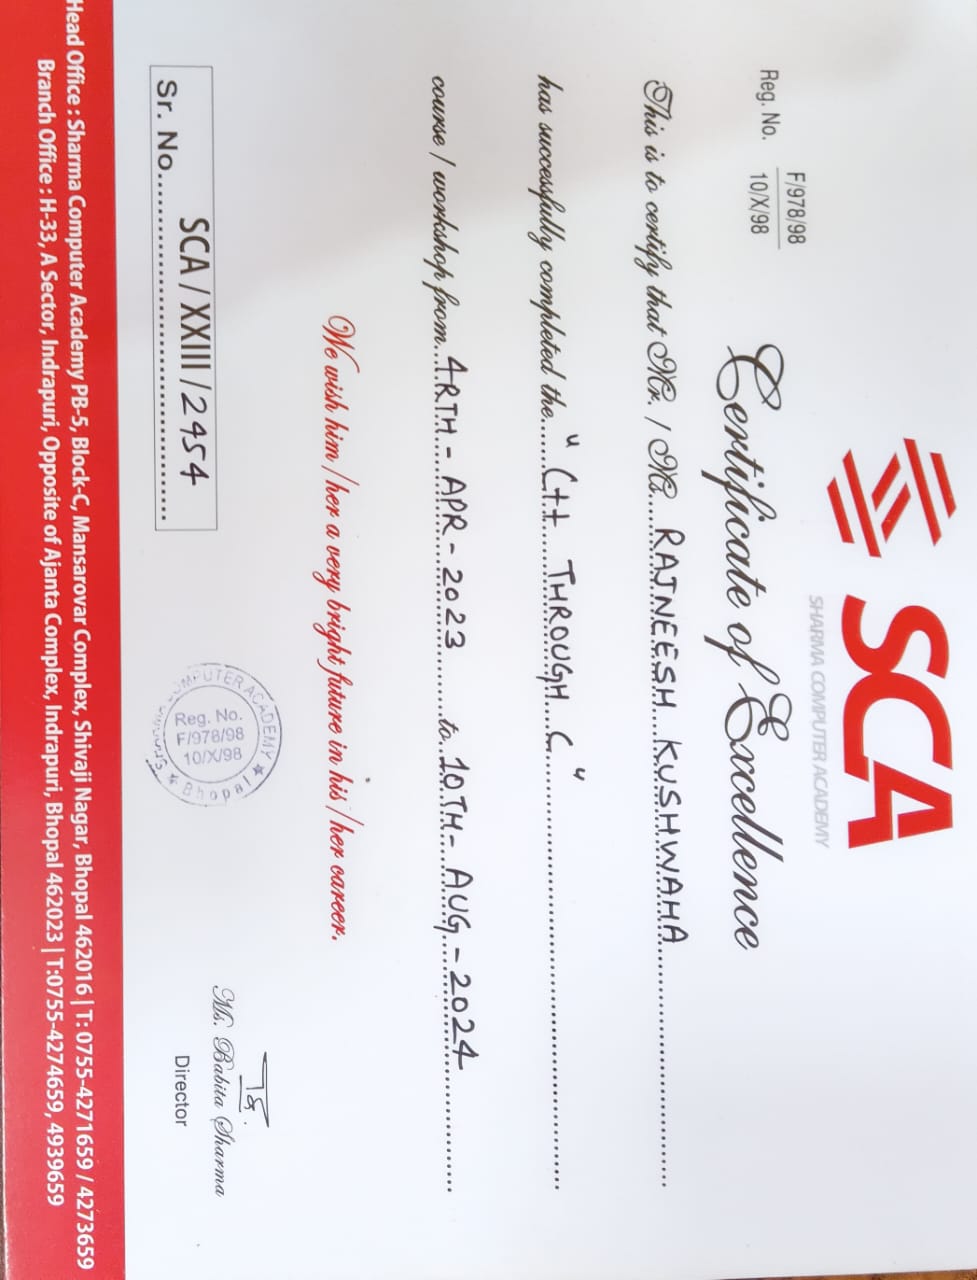 SCA
SHARMA COMPUTER ACADEMY
Reg. No. F/978/98
10/X/98
Certificate of Excellence
This is to certify that Mr. / Ms. RAJNEESH KUSHWAHA
has successfully completed the "C++ THROUGH C"
course / workshop from 4RTH - APR - 2023 to 10TH - AUG - 2024
We wish him / her a very bright future in his / her career.
COMPUTER ACADEMY ★ Bhopal ★
Reg. No.
F/978/98
10/X/98
Ms. Babita Sharma
Director
SCA / XXIII / 2454
Sr. No.
Head Office : Sharma Computer Academy PB-5, Block-C, Mansarovar Complex, Shivaji Nagar, Bhopal 462016 | T: 0755-4271659 / 4273659
Branch Office : H-33, A Sector, Indrapuri, Opposite of Ajanta Complex, Indrapuri, Bhopal 462023 | T:0755-4274659, 4939659